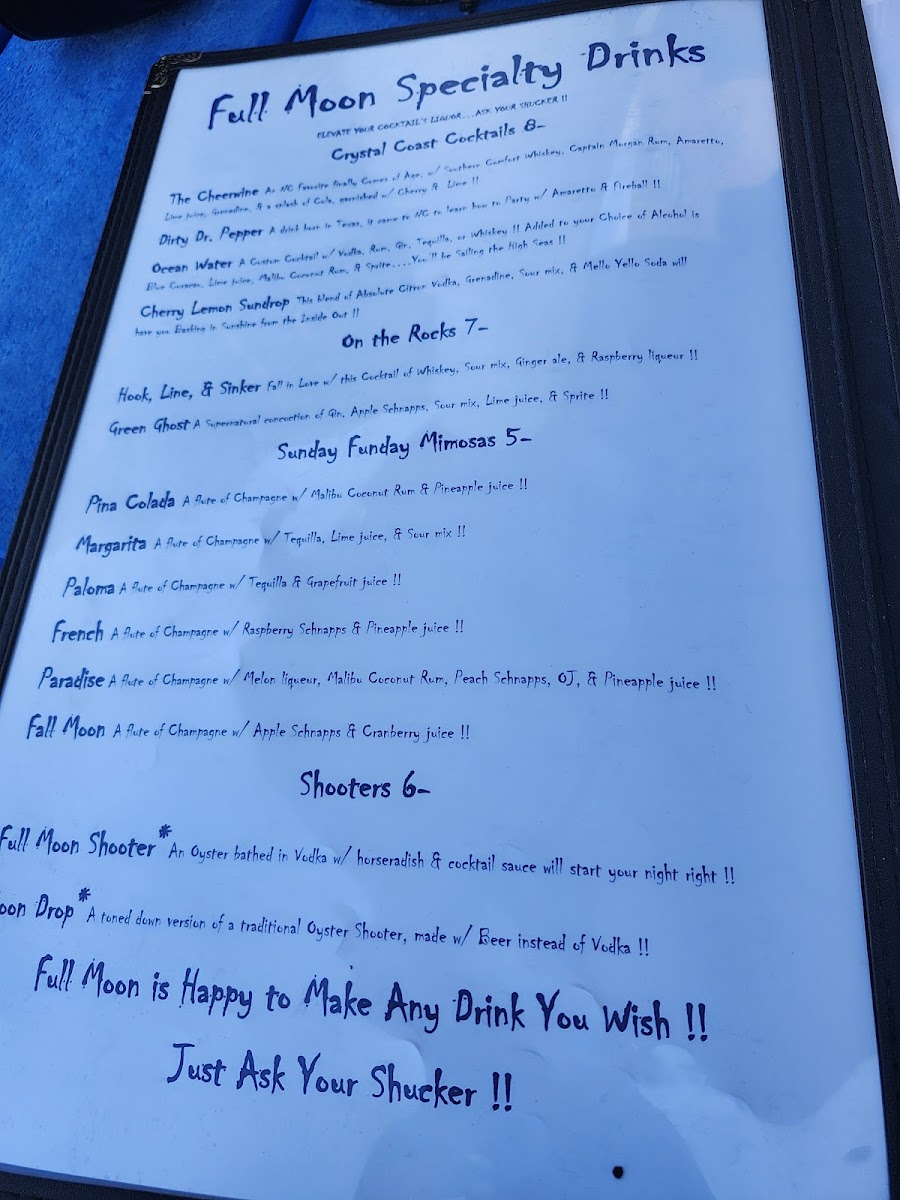 Full Moon Specialty Drinks
ELEVATE YOUR COCKTAIL'S LIQUOR...ASK YOUR SHUCKER !!
Crystal Coast Cocktails 8-
The Cheerwine An NC Favorite finally Comes of Age, w/ Southern Comfort Whiskey, Captain Morgan Rum, Amaretto,
Lime juice, Grenadine, & a splash of Cola, garnished w/ Cherry & Lime !!
Dirty Dr. Pepper A drink born in Texas, it came to NC to learn how to Party w/ Amaretto & Fireball !!
Ocean Water A Custom Cocktail w/ Vodka, Rum, Gin, Tequilla, or Whiskey !! Added to your Choice of Alcohol is
Blue Curacao, Lime juice, Malibu Coconut Rum, & Sprite....You'll be Sailing the High Seas !!
Cherry Lemon Sundrop This blend of Absolute Citron Vodka, Grenadine, Sour mix, & Mello Yello Soda will
have you Basking in Sunshine from the Inside Out !!
On the Rocks 7-
Hook, Line, & Sinker Fall in Love w/ this Cocktail of Whiskey, Sour mix, Ginger ale, & Raspberry liqueur !!
Green Ghost A Supernatural concoction of Gin, Apple Schnapps, Sour mix, Lime juice, & Sprite !!
Sunday Funday Mimosas 5-
Pina Colada A flute of Champagne w/ Malibu Coconut Rum & Pineapple juice !!
Margarita A flute of Champagne w/ Tequilla, Lime juice, & Sour mix !!
Paloma A flute of Champagne w/ Tequilla & Grapefruit juice !!
French A flute of Champagne w/ Raspberry Schnapps & Pineapple juice !!
Paradise A flute of Champagne w/ Melon liqueur, Malibu Coconut Rum, Peach Schnapps, OJ, & Pineapple juice !!
Fall Moon A flute of Champagne w/ Apple Schnapps & Cranberry juice !!
Shooters 6-
Full Moon Shooter* An Oyster bathed in Vodka w/ horseradish & cocktail sauce will start your night right !!
oon Drop* A toned down version of a traditional Oyster Shooter, made w/ Beer instead of Vodka !!
Full Moon is Happy to Make Any Drink You Wish !!
Just Ask Your Shucker !!